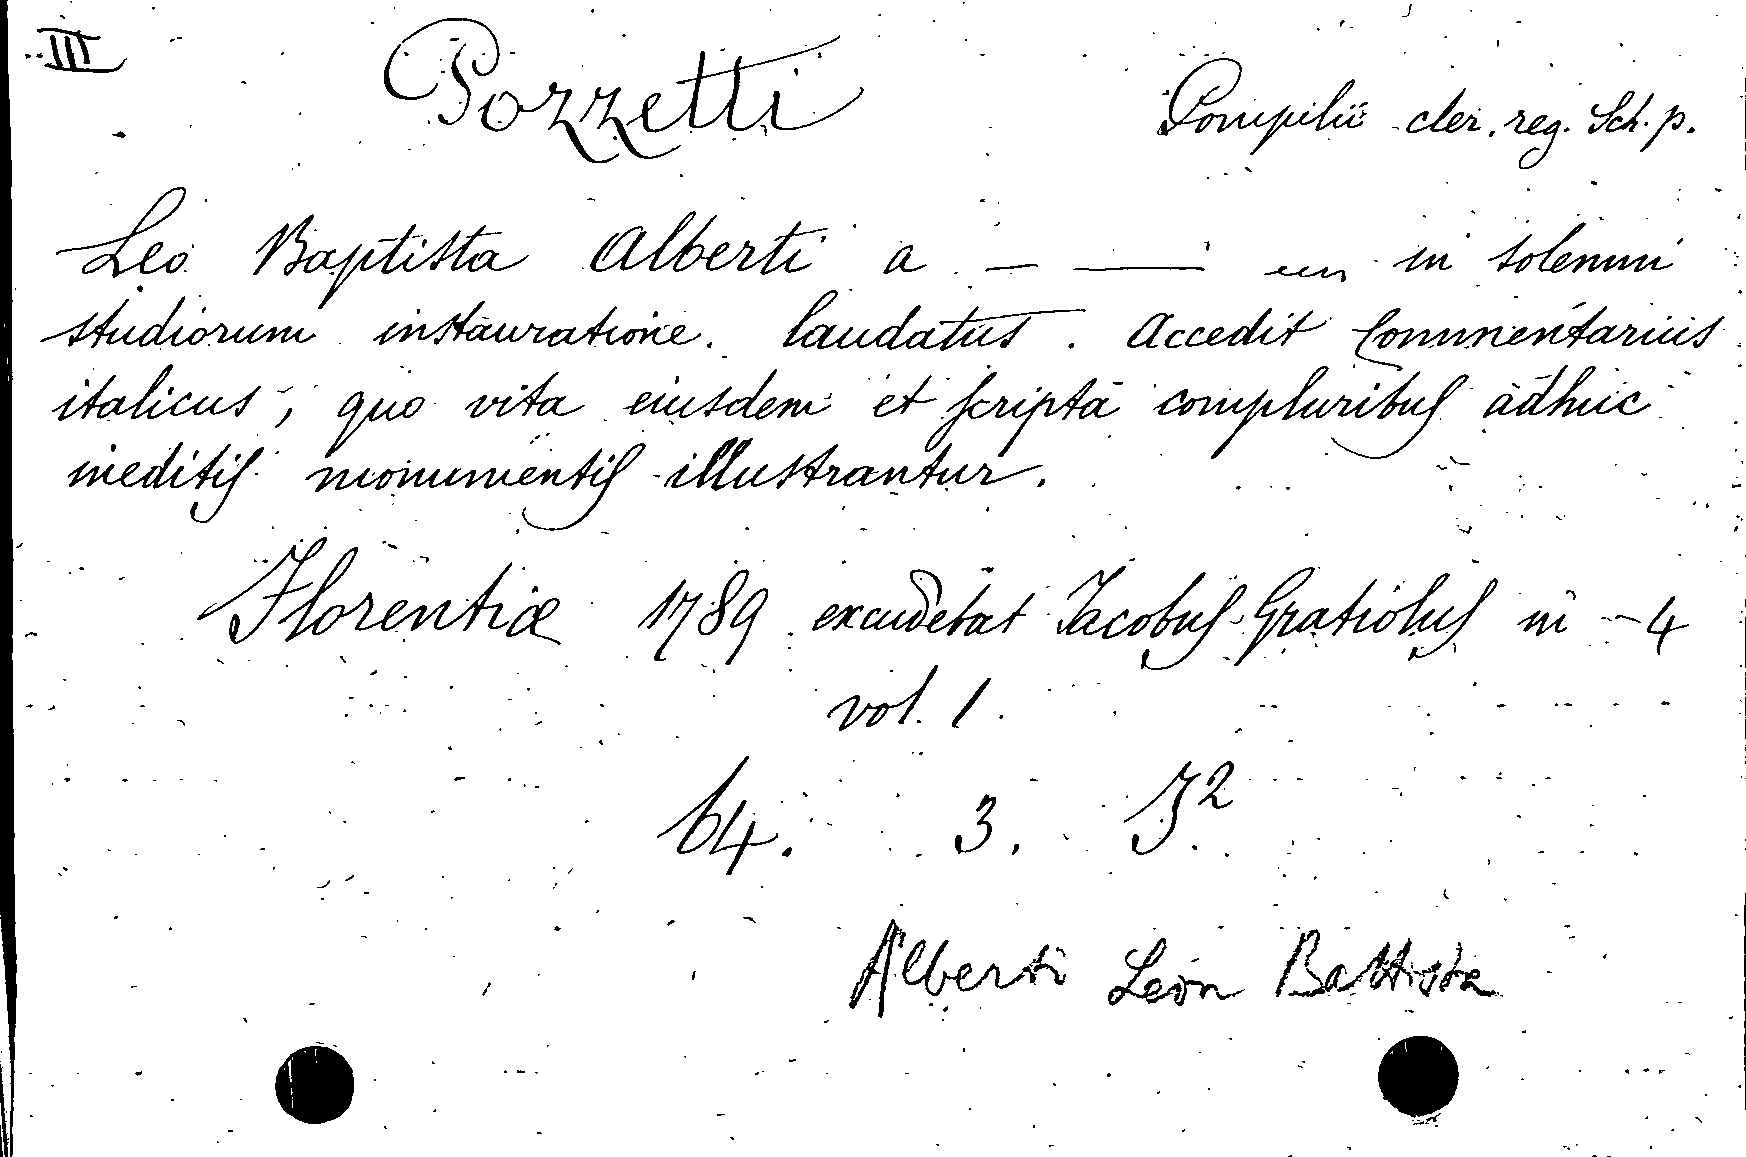 III
Pozzetti Pompilii cler. reg. Sch. p.
Leo Baptista Alberti a — —— in solemni
studiorum instauratione. laudatus. Accedit Commentarius
italicus, quo vita eiusdem et scripta compluribus adhuc
ineditis monumentis illustrantur.
Florentiæ 1789 excudebat Jacobus Gratiolus in-4
vol. 1.
64. 3. J²
Alberti Leon Battista